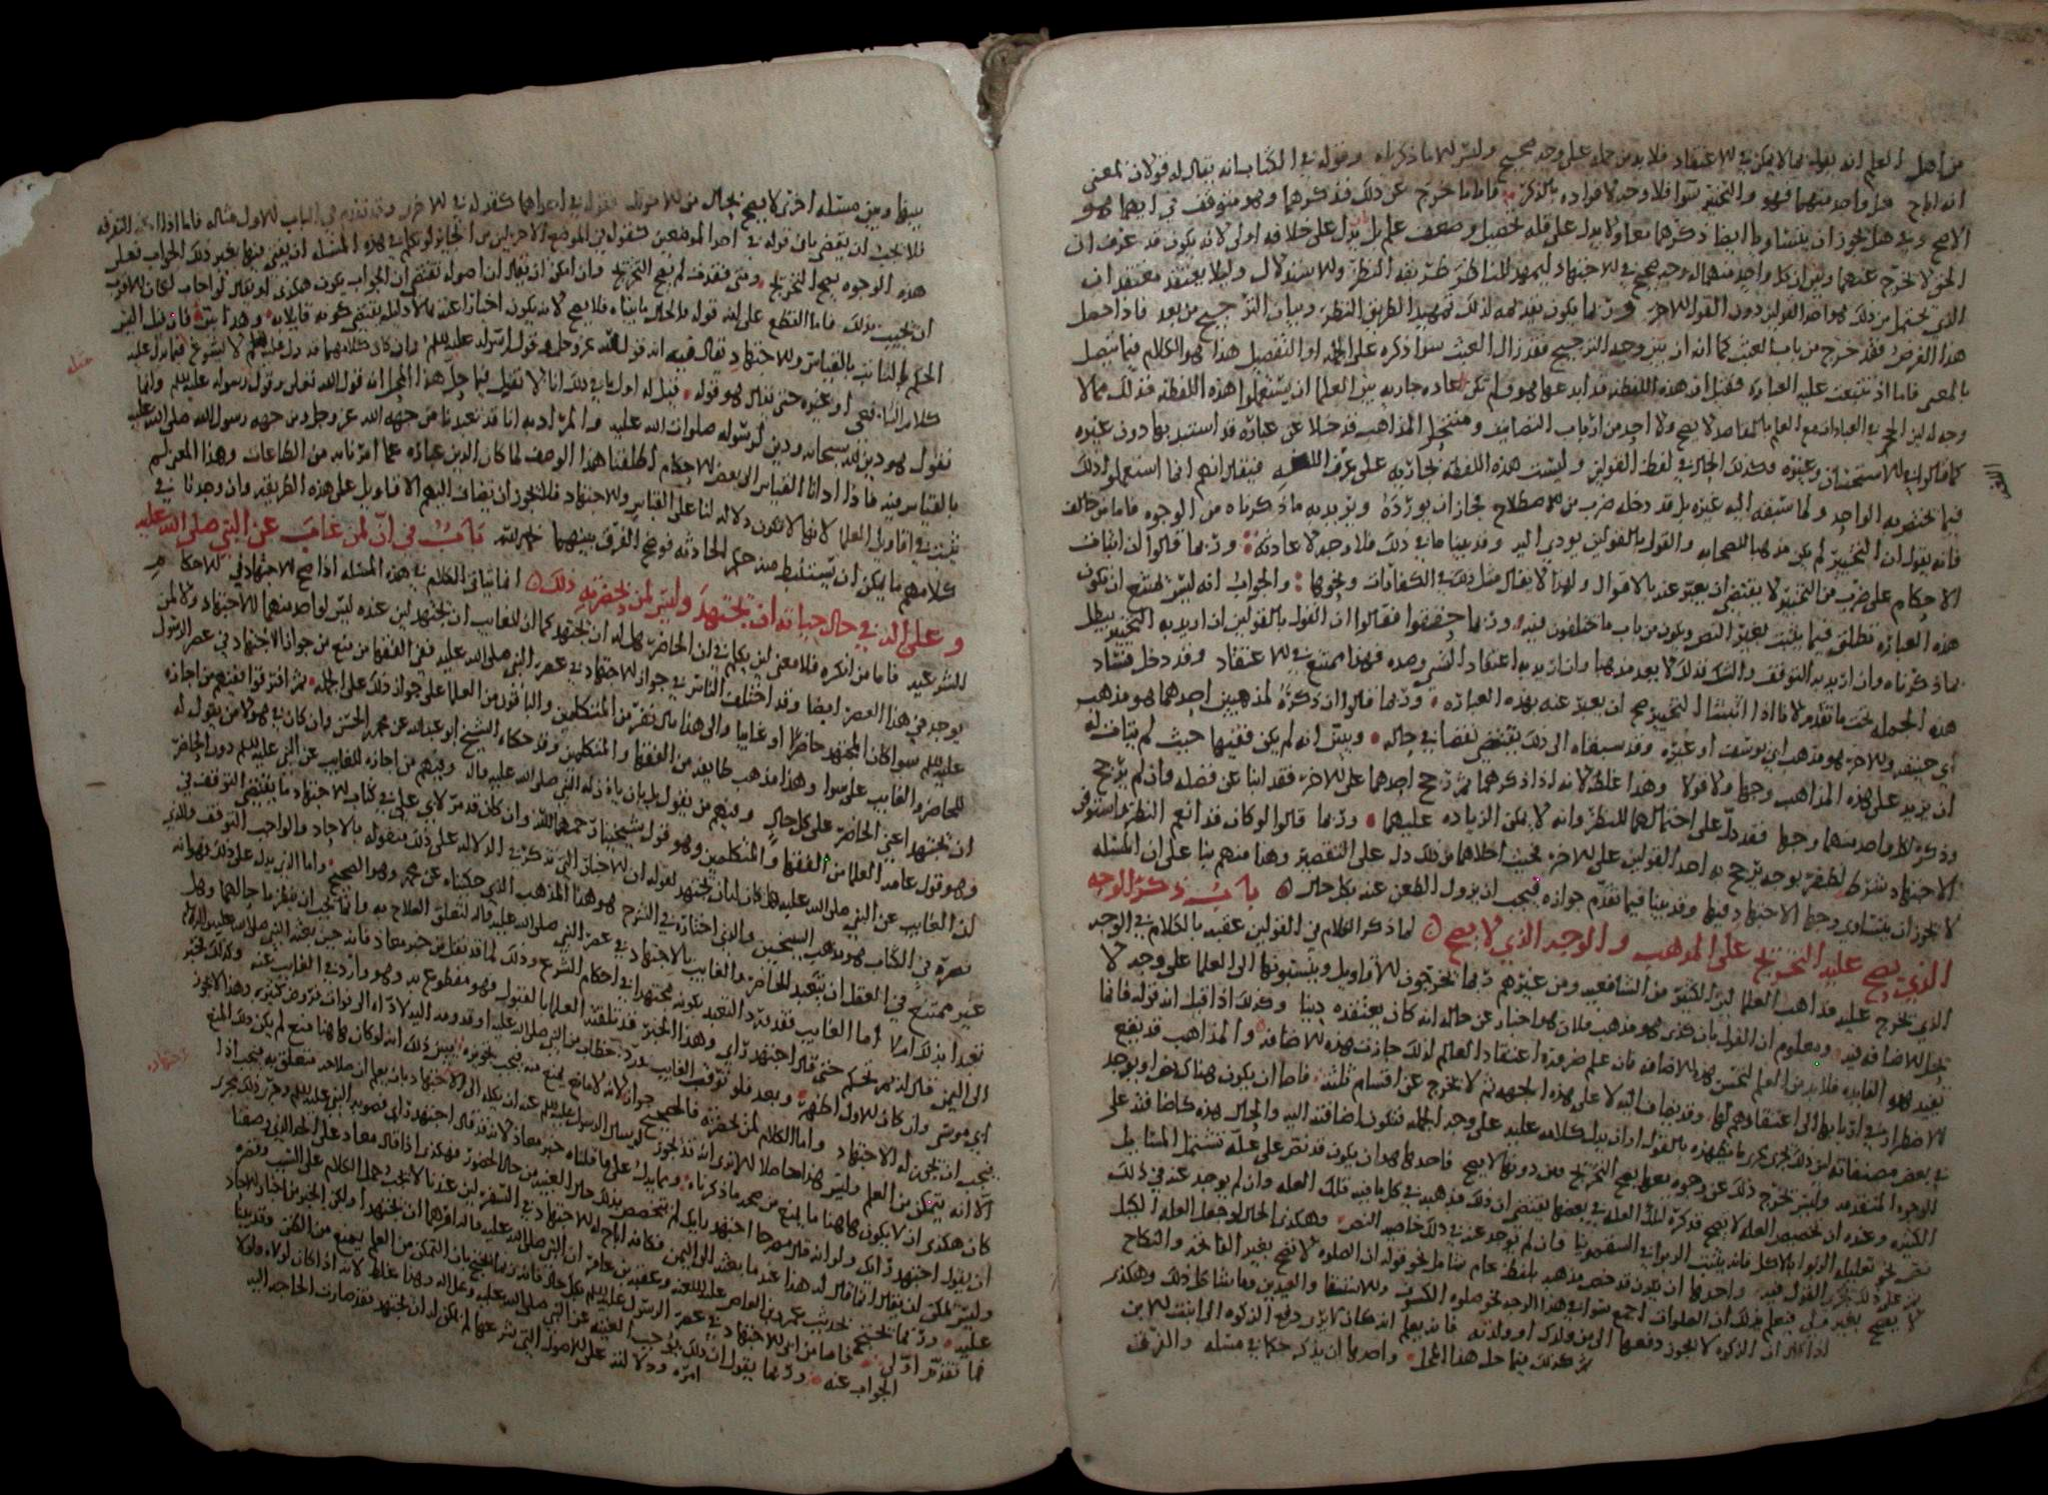 من اهل العلم انه يقوله بما لا يمكن في الاعتقاد فلا بد من حمله على وجه صحيح وليس الا ما ذكرناه وقوله في الكتاب انه يقال له قولان لمعنى
انه اباح كل واحد منهما فهو والتخيير سوا فلا وجه لافراده بالذكر فاما ما خرج عن ذلك فذكرهما وهو متوقف في ايهما هو
الاصح وفي هل يجوز ان يتساويا ايضا ذكرهما معا ولا يدل على قلة تحصيل وضعف علم بل يدل على خلافه اولى لانه يكون قد عرف ان
الحق لا يخرج عنهما وبين ان كل واحد منهما له وجه صحيح في الاجتهاد ليمهد للناظر طريقة النظر والاستدلال وليلا يعتقد معتقد ان
الذي يحتمل من ذلك هو احد القولين دون القول الاخر وربما يكون تقديمه لذلك تمهيدا لطريق النظر وبيان الترجيح من بعد فاذا حصل
هذا الغرض فقد خرج من باب العبث كما انه ان بين وجه الترجيح فقد زال العبث سوا ذكره على الجملة او التفصيل هذا هو الكلام فيما يتصل
بالمعنى فاما اذا تتبعت عليه العبارة فقيل ان هذه اللفظة قد ابدعها هو ولم تكن عادة جارية بين العلما ان يستعملوا هذه اللفظة فذلك مما لا
وجه له لان الحجر في العبارات مع العلم بالمقاصد لا يصح ولا احد من ارباب التصانيف ومنتحلي المذاهب قد خلا عن عبارة قد استبد بها دون غيره
كما قالوا في الاستحسان وغيره وكذلك الحال في لفظ القولين وليست هذه اللفظة بجارية على عرف اللغه فيقال انهم انما استعملوا ذلك
فيما يختص به الواحد ولما سبقه اليه غيره بل قد دخله ضرب من الاصطلاح فجاز ان يورده ويريد به ما ذكرناه من الوجوه فاما من خالف
فانه يقول ان التخيير لم يكن مذهبا للصحابة والقول بالقولين يودي اليه وقد بينا ما في ذلك فلا وجه لاعادته وربما قالوا ان اثبات
الاحكام على ضرب من التخيير لا يقتضي ان يعبر عنه بالاقوال ولهذا لا يقال مثل ذلك في الكفارات ونحوها والجواب انه ليس يمتنع ان تكون
هذه العبارة تطلق فيما يثبت بغير النص ويكون من باب ما يختلفون فيه وربما حققوا فقالوا ان القول بالقولين ان اريد به التخيير يبطل
بما ذكرناه وان اريد به التوقف والشك فذلك لا يعد مذهبا وان اريد به اعتقاد الشي وضده فهذا ممتنع في الاعتقاد وقد دخل فساد
هذه الجملة تحت ما تقدم لانا اذا اثبتنا التخيير صح ان يعبر عنه بهذه العبارة وربما قالوا ان ذكره لمذهبين احدهما هو مذهب
ابي حنيفه والاخر هو مذهب ابي يوسف او غيره وقد سبقاه الى ذلك يقتضي نقصا في حاله ويبين انه لم يكن فقيها حيث لم يتات له
ان يزيد على هذه المذاهب وجها ولا قولا وهذا غلط لانه اذا ذكرهما ثم رجح احدهما على الاخر فقد ابان عن فضله وان لم يرجح
وذكر لكل واحد منهما وجها فقد دل على احتمالهما للنظر وانه لا يمكن الزيادة عليهما وربما قالوا لو كان قد انعم النظر واستوفى
الاجتهاد بشرطه لظفر بوجه يرجح به احد القولين على الاخر فحيث اخلاهما من ذلك دل على التقصير وهذا منهم بنا على ان المسئلة
لا يجوز ان يتساوى وجها الاجتهاد فيها وقد بينا فيما تقدم جوازه فيجب ان يزول الطعن عنه بكل حال باب ذكر الوجه
الذي يصح عليه التخريج على المذهب والوجه الذي لا يصح لما ذكر الكلام في القولين عقبه بالكلام في الوجه
الذي تخرج عليه مذاهب العلما لان الكثير من الشافعية ومن غيرهم ربما يخرجون الاقاويل وينسبونها الى العلما على وجه لا
تحل الاضافة فيه ومعلوم ان القول بان كذى هو مذهب فلان هو اخبار عن حاله انه كان يعتقده دينا وكذلك اذا قيل انه قوله فانما
تفيد هو الفايدة فلا بد من العلم لتحسن هذه الاضافة فان علم ضرورة اعتقاد العالم لذلك جازت هذه الاضافة والمذاهب قد يقع
الاضطرار في اربابها الى اعتقادهم لها وقد يضاف اليه لا على هذه الجهة ثم لا يخرج عن اقسام ثلثة فاما ان يكون هناك نص او يوجد
في بعض مصنفاته لان ذلك يجري مجرى ما يظهره بالقول او ان يدل كلامه عليه على وجه الجملة فتكون اضافته اليه والحال هذه كاضافته على
الوجوه المتقدمة وليس يخرج ذلك عن وجوه معها يصح التخريج ومن دونها لا يصح فاحدها هو ان يكون قد نص على علة تشتمل المسايل
الكثيرة وعنده ان تخصيص العلة لا يصح فذكره لتلك العلة في بعضها يقتضي ان ذلك مذهبه في كل ما فيه تلك العلة وان لم يوجد عنه في ذلك
نص نحو تعليله الربوا بالاكل فانه يثبت الربوا في السقمونيا وان لم يوجد عنه في ذلك خاصة النص وهكذى الحال لو جعل العلة الكيل
من عل ذلك يجري القول فيه واحدها ان يكون قد نص مذهبه بلفظ عام شامل نحو قوله ان الصلوة لا تصح بغير الفاتحة والنكاح
لا يصح بغير ولي فيعلم بذلك ان الصلوات اجمع سوا في هذا الوجه نحو صلوة الكسوف والاستسقا والعيدين وما شاكل ذلك وهكذى
اذا قال ان الزكوة لا يجوز دفعها الى من ولدك او ولدته فانه يعلم انه كان لا يرى دفع الزكوة الى ابنت الابن
ثم كذلك فيما حل هذا المحل واحدها ان يذكر حكما في مسئلة والفرق
بينها وبين مسئلة اخرى لا يصح بحال من الاحوال فقوله في احداهما كقوله في الاخرى وقد تقدم في الباب الاول مثاله فاما اذا امكن التفرقة
فلا يجب ان يقضى بان قوله في احد الموضعين كقوله في الموضع الاخر لان من الجايز لو كلم في هذه المسئلة ان يفتي فيها بغير ذلك الجواب فعلى
هذه الوجوه يصح التخريج ومتى فقدت لم يصح التخريج وان امكن ان يقال ان اصوله تقتضي ان الجواب يكون هكذى او يقال لو اجاب لكان الاقرب
ان يجيب بذلك فاما القطع على انه قوله والحال ما بيناه فلا يصح لانه يكون اخبارا عنه بما لا دليل يقتضي كونه قايلا به وهذا بين فان قيل اليس
الحكم الثابت بالقياس والاجتهاد يقال فيه انه قول الله عز وجل وقول الرسول عليه السلم وان كان كلامهما قد دل عليه فلم لا يسوغ فيما يدل عليه
كلام الشافعي او غيره حتى يقال هو قوله قيل له اول ما في ذلك انا لا نقول فيما حل هذا المحل انه قول الله تعالى وقول رسوله عليه السلم وانما
نقول هو دين لله سبحانه ودين لرسوله صلوات الله عليه والمراد به انا قد تعبدنا من جهة الله عز وجل ومن جهة رسول الله صلى الله عليه
بالقياس فيه فاذا ادانا القياس الى بعض الاحكام اطلقنا هذا الوصف لما كان الدين عبارة عما امرنا به من الطاعات وهذا المعنى لم
يثبت في اقاويل العلما لانها لا تكون دلالة لنا على القياس والاجتهاد فلا يجوز ان يضاف اليهم الاقاويل على هذه الطريقة وان وجدنا في
كلامهم ما يمكن ان يستنبط منه حكم الحادثة فوضح الفرق بينهما باب في ان لمن غاب عن النبي صلى الله عليه
وعلى اله في حال حياته ان يجتهد وليس لمن بحضرته ذلك انما ياتي الكلام في هذه المسئلة اذا صح الاجتهاد في الاحكام
الشرعية فاما من انكره فلا معنى لان يكلم في ان الحاضر هل له ان يجتهد كما ان للغايب ان يجتهد لان عنده ليس لواحد منهما الاجتهاد ولا لمن
يوجد في هذا العصر ايضا وقد اختلف الناس في جواز الاجتهاد في عصر النبي صلى الله عليه ففي الفقها من منع من جواز الاجتهاد في عصر الرسول
عليه السلم سوا كان المجتهد حاضرا او غايبا والى هذا مال نفر من المتكلمين والباقون من العلما على جواز ذلك على الجملة ثم افترقوا فمنهم من اجازه
للحاضر والغايب على سوا وهذا مذهب طايفة من الفقها والمتكلمين وقد حكاه الشيخ ابو عبد الله عن محمد بن الحسن وان كان في هولا من يقول له
ان يجتهد اعني الحاضر على كل حال وفيهم من يقول بل بان ياذن له النبي صلى الله عليه واله وفيهم من اجازه للغايب عن النبي عليه السلم دون الحاضر
وهو قول عامة العلما من الفقها والمتكلمين وهو قول شيخينا رحمهما الله وان كان قد مر لابي علي في كتاب الاجتهاد ما يقتضي التوقف في
ان الغايب عن النبي صلى الله عليه هل كان له ان يجتهد لقوله ان الاخبار التي تذكر في الدلالة على ذلك منقوله بالاحاد والواجب التوقف والذي
نصره في الكتاب هو مذهب الشيخين والذي اختاره في الشرح هو هذا المذهب الذي حكيناه عن محمد وهو الصحيح واما الذي يدل على ذلك فهو انه
غير ممتنع في العقل ان يتعبد الحاضر والغايب بالاجتهاد في عصر النبي صلى الله عليه واله لتعلق الصلاح به وانما يجب ان ينظر ما حالهما وهل
تعبدا بذلك ام لا اما الغايب فقد ورد التعبد بكونه مجتهدا في احكام الشرع وذلك لما قد نقل من خبر معاذ فانه حين بعثه النبي صلى الله عليه واله
الى اليمن قال له بم تحكم حتى قال اجتهد راي وهذا الخبر قد تلقته العلما بالقبول فهو مقطوع به وهو وارد في الغايب عنه وكذلك خبر
ابي موسى وان كان الاول اظهر وبعد فلو توقف الغايب لورود خطاب من النبي صلى الله عليه او قدومه اليه لادى الى فوات فروض كثيرة وهذا لا يجوز
فيجب ان يجوز له الاجتهاد واما الكلام لمن بحضرته فالصحيح جوازه لانه لا مانع يمنع منه فيجب تجويزه يبين ذلك انه لو كان هاهنا منع لم يكن ذلك المنع
الا انه يتمكن من العلم وليس هذا حاصلا الا ترى انه قد يجوز ان يسال الرسول عليه السلم عنه ان يكله الى الاجتهاد بان يعلم ان صلاحه متعلق به فيجب اذا
كان هكذى ان لا يكون هاهنا ما يمنع من صحة ما ذكرناه ومما يدل على ما قلناه خبر معاذ لانه قد قال اجتهد راي فصوبه النبي عليه السلم ومر ذلك مجرى
ان يقول اجتهد رايك ولو انه قال صريحا اجتهد رايك لم يتخصص بذلك حال الغيبة من حال الحضور فهكذى اذا قال معاذ على الحد الذي وصفنا
وليس يمكن ان يقال انما قال له هذا عند ما بعثه الى اليمن فكانه اباح له الاجتهاد في السفر لان عندنا لا يجب حمل الكلام على السبب وقصره
عليه وربما يحتج بحديث عمرو بن العاص عليه اللعنة وعقبة بن عامر ان النبي صلى الله عليه واله امرهما ان يجتهدا ولكن الخبر من اخبار الاحاد
فما تقدم اولى فاما من ابى الاجتهاد في عصر الرسول عليه السلم بكل حال فانه ربما يحتج بان التمكن من العلم يمنع من الظن وقد بينا
الجواب عنه وربما يقول ان ذلك يوجب الغيبة عن النبي صلى الله عليه وعلى اله وهذا غلط لانه اذا كان لولاه ولولا
امره ودلالته على الاصول التي شرعها لم يكن له ان يجتهد فقد صارت الحاجة اليه